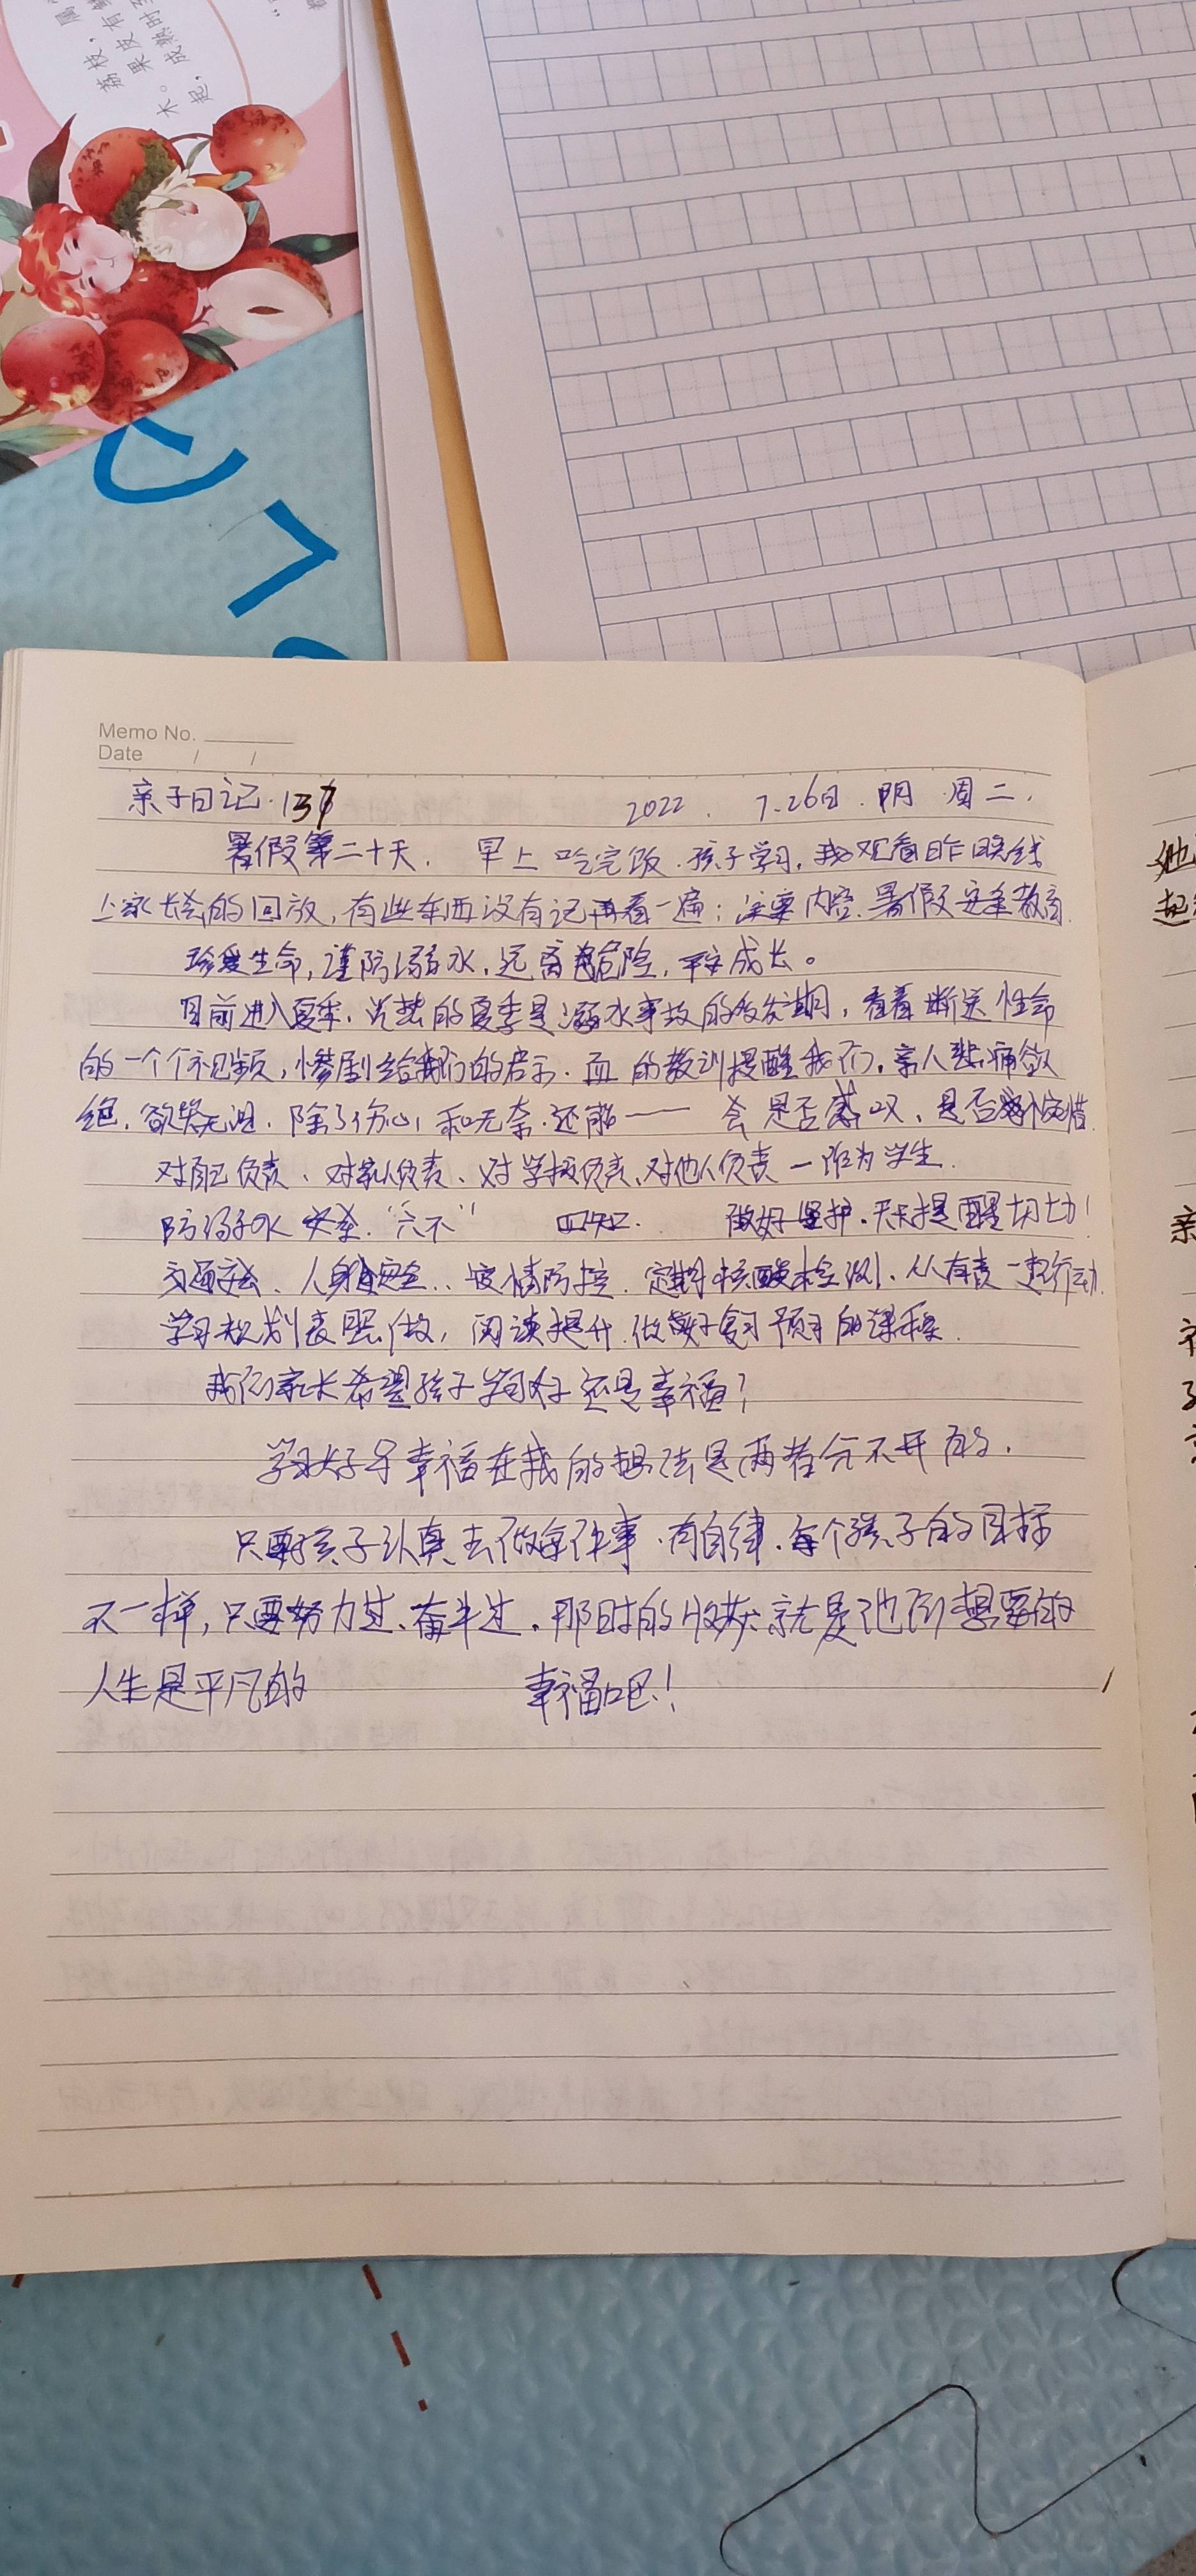 荔枝，属
果皮有
木。成熟时
起，
Memo No.
Date / /
亲子日记·137 2022. 7.26日. 阴 周二.
暑假第二十天. 早上吃完饭.孩子学习,我观看昨晚线
上家长会的回放,有些东西没有记再看一遍;主要内容.暑假安全教育.
珍爱生命,谨防溺水,远离危险,平安成长。
目前进入夏季,炎热的夏季是溺水事故的多发期,看着断送性命
的一个个视频,惨剧给我们的启示.血的教训提醒我们,亲人悲痛欲
绝.欲哭无泪.除了伤心和无奈.还能—— 会是否感叹,是否惋惜.
对自己负责、对家人负责、对学校负责、对他人负责—作为学生.
防溺水安全.“六不” 四知. 做好监护.天天提醒切切!
交通安全、人身安全..疫情防控.定期核酸检测.人人有责一起行动.
学习规划表照做,阅读提升.做好复习预习的课程.
我们家长希望孩子学习好还是幸福?
学习好与幸福在我的想法是两者分不开的.
只要孩子认真去做每件事.有自律.每个孩子的目标
不一样,只要努力过、奋斗过.那时的收获就是他们想要的
人生是平凡的 幸福吧!
她
起
亲